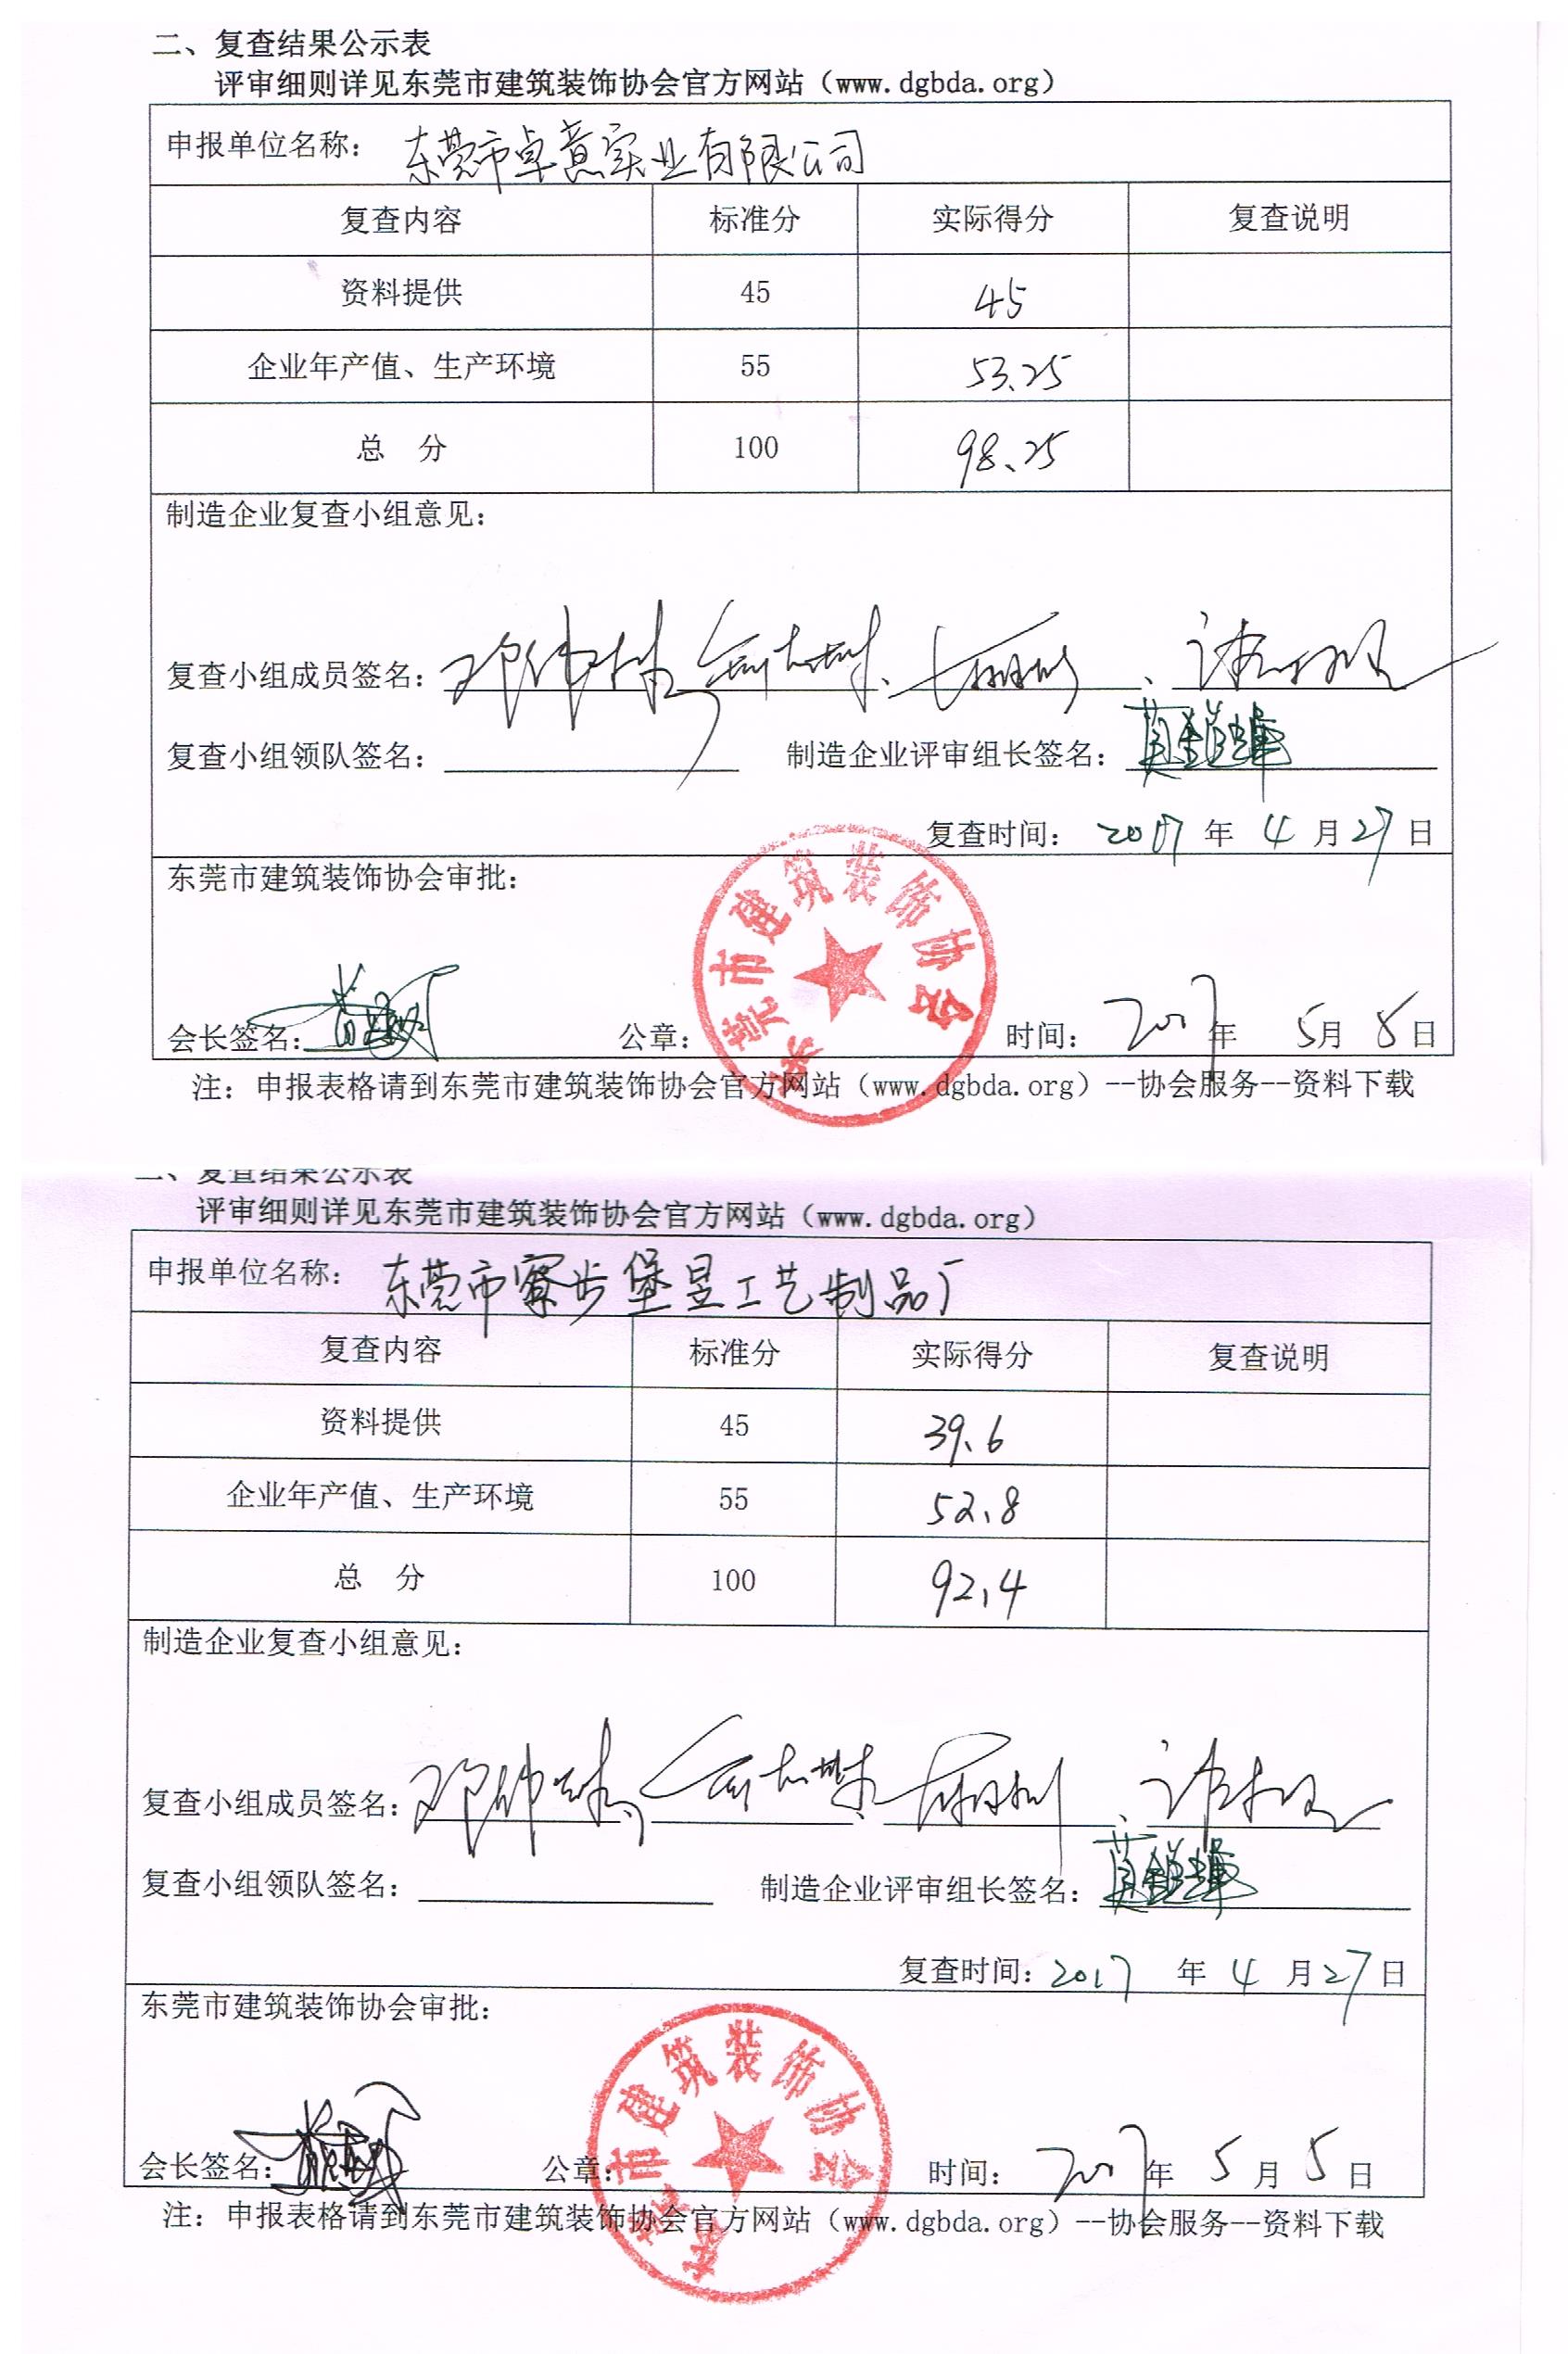 二、复查结果公示表
评审细则详见东莞市建筑装饰协会官方网站（www.dgbda.org）
申报单位名称： 东莞市卓意实业有限公司
复查内容 标准分 实际得分 复查说明
资料提供 45 45
企业年产值、生产环境 55 53.25
总 分 100 98.25
制造企业复查小组意见：
复查小组成员签名：
复查小组领队签名： 制造企业评审组长签名：
复查时间： 2017 年 4 月 27 日
东莞市建筑装饰协会审批：
东莞市建筑装饰协会
会长签名： 公章： 时间： 2017 年 5 月 8 日
注：申报表格请到东莞市建筑装饰协会官方网站（www.dgbda.org）--协会服务--资料下载
二、复查结果公示表
评审细则详见东莞市建筑装饰协会官方网站（www.dgbda.org）
申报单位名称： 东莞市寮步堡昱工艺制品厂
复查内容 标准分 实际得分 复查说明
资料提供 45 39.6
企业年产值、生产环境 55 52.8
总 分 100 92.4
制造企业复查小组意见：
复查小组成员签名：
复查小组领队签名： 制造企业评审组长签名：
复查时间： 2017 年 4 月 27 日
东莞市建筑装饰协会审批：
东莞市建筑装饰协会
会长签名： 公章： 时间： 2017 年 5 月 5 日
注：申报表格请到东莞市建筑装饰协会官方网站（www.dgbda.org）--协会服务--资料下载